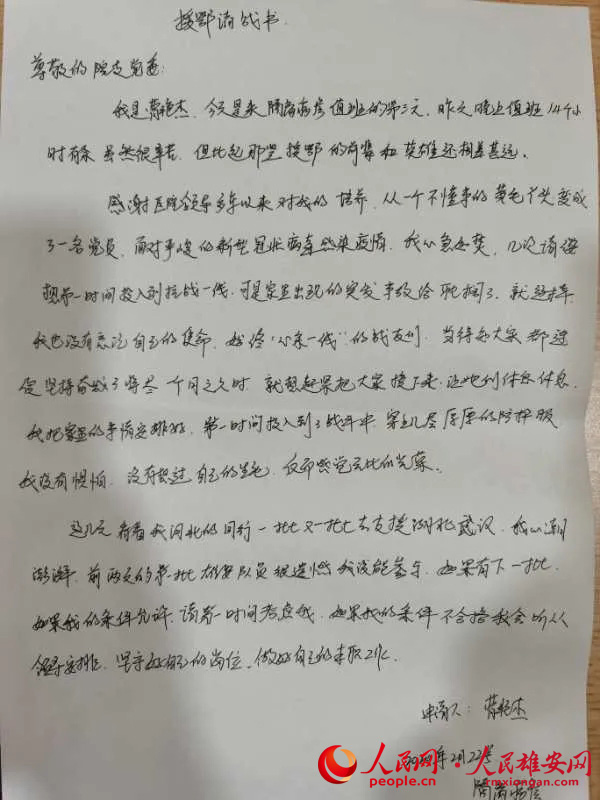 援鄂请战书
尊敬的院支党委:
我是曹艳杰，今天是来隔离病房值班的第三天，昨天晚上值班14个小
时有余 虽然很辛苦，但比起那些援鄂的前辈和英雄还相差甚远。
感谢医院领导多年以来对我的培养，从一个不懂事的黄毛丫头变成
了一名党员，面对严峻的新型冠状病毒感染疫情，我心急如焚，几次请缨
想第一时间投入到抗战一线，可是家里出现的突发事故给耽搁了，就这样
我也没有忘记自己的使命，始终“心系一线”的战友们，当得知大家都过
度坚持奋战了将尽一个月之久时 就想赶紧把大家接下来，让她们休息休息，
我把家里的事情安排好，第一时间投入到了战斗中，穿上几层厚厚的防护服
我没有惧怕，没有想过自己的生死，反而感觉无比的光荣。
这几天看着我河北的同行一批又一批去支援湖北武汉，我心潮
澎湃，前两天的第一批 雄安队员很遗憾我没能参与，如果有下一批，
如果我的条件允许，请第一时间考虑我，如果我的条件不合格我会听从
领导安排，坚守好自己的岗位，做好自己的本职工作。
申请人：曹艳杰
2020年2月22号
隔离病房
人民网·人民雄安网
people.cn rmxiongan.com